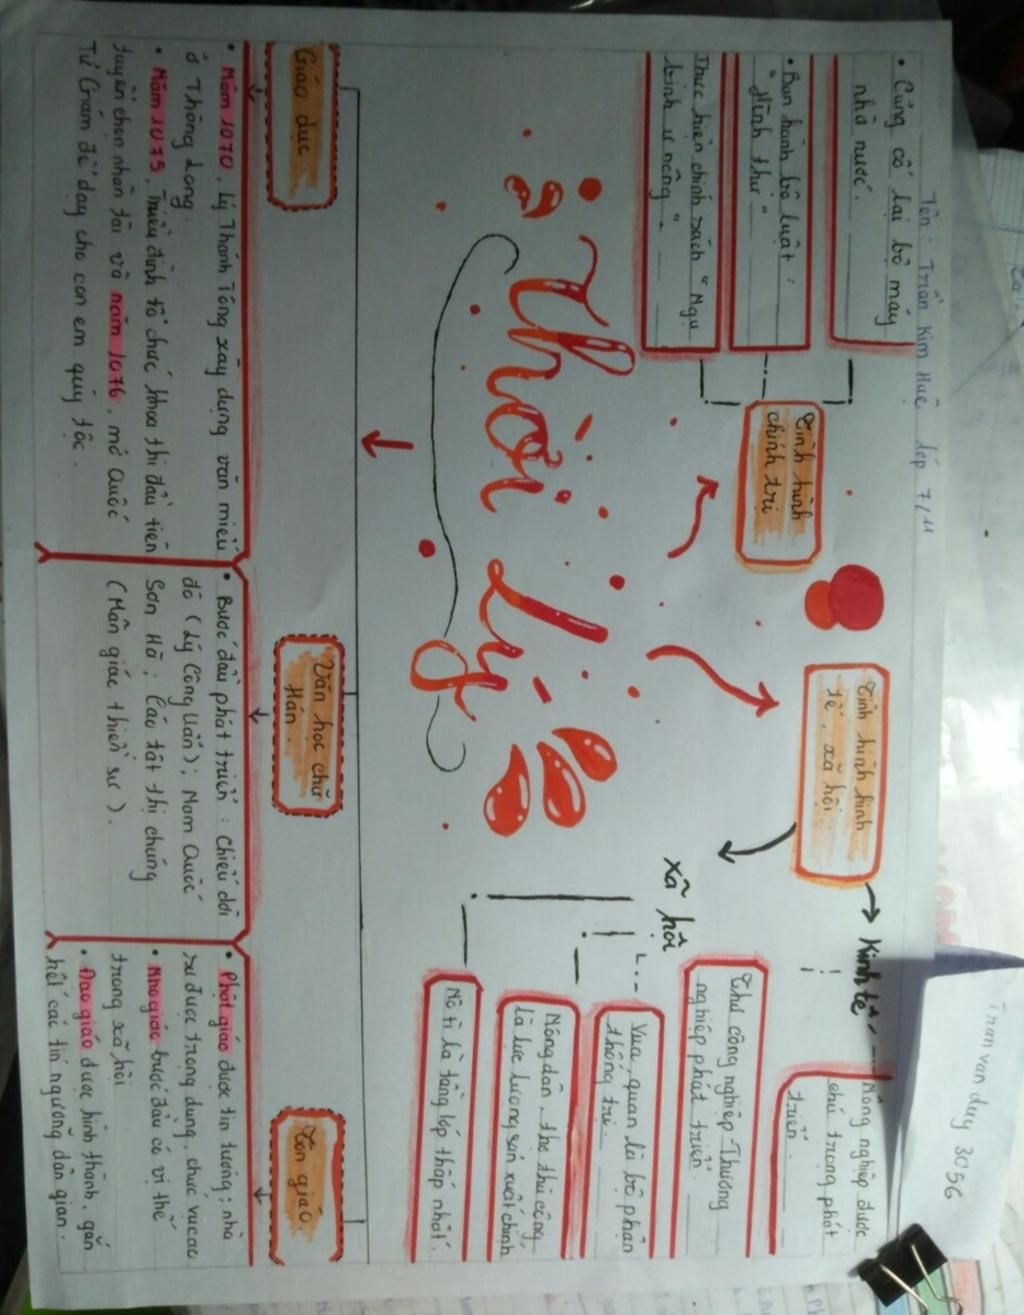 Tên: Trần Kim Huệ lớp 7/11
Tran van duy 3056
• Củng cố lại bộ máy
nhà nước.
• Ban hành bộ luật:
"Hình thư"
Thực hiện chính sách "Ngụ
binh ư nông"
Tình hình
chính trị
Tình hình kinh
tế, xã hội.
Kinh tế
Nông nghiệp được
chú trọng phát
triển.
Thủ công nghiệp-Thương
nghiệp phát triển.
xã hội
Vua, quan là bộ phận
thống trị.
Nông dân, thợ thủ công,
là lực lượng sản xuất chính
Nô tì là tầng lớp thấp nhất.
Thời Lý
Giáo dục
• Năm 1070, Lý Thánh Tông xây dựng văn miếu
ở Thăng Long.
• Năm 1075, Triều đình tổ chức khoa thi đầu tiên
tuyển chọn nhân tài và năm 1076, mở Quốc
Tử Giám để dạy cho con em quý tộc.
Văn học chữ
Hán.
• Bước đầu phát triển: Chiếu dời
đô (Lý Công Uẩn); Nam Quốc
Sơn Hà; Cáo tật thị chúng
(Mãn giác thiền sư).
Tôn giáo.
• Phật giáo được tin tưởng; nhà
sư được trọng dụng, chức vụ cao
• Nho giáo bước đầu có vị thế
trong xã hội
• Đạo giáo được hình thành, gắn
kết các tín ngưỡng dân gian.